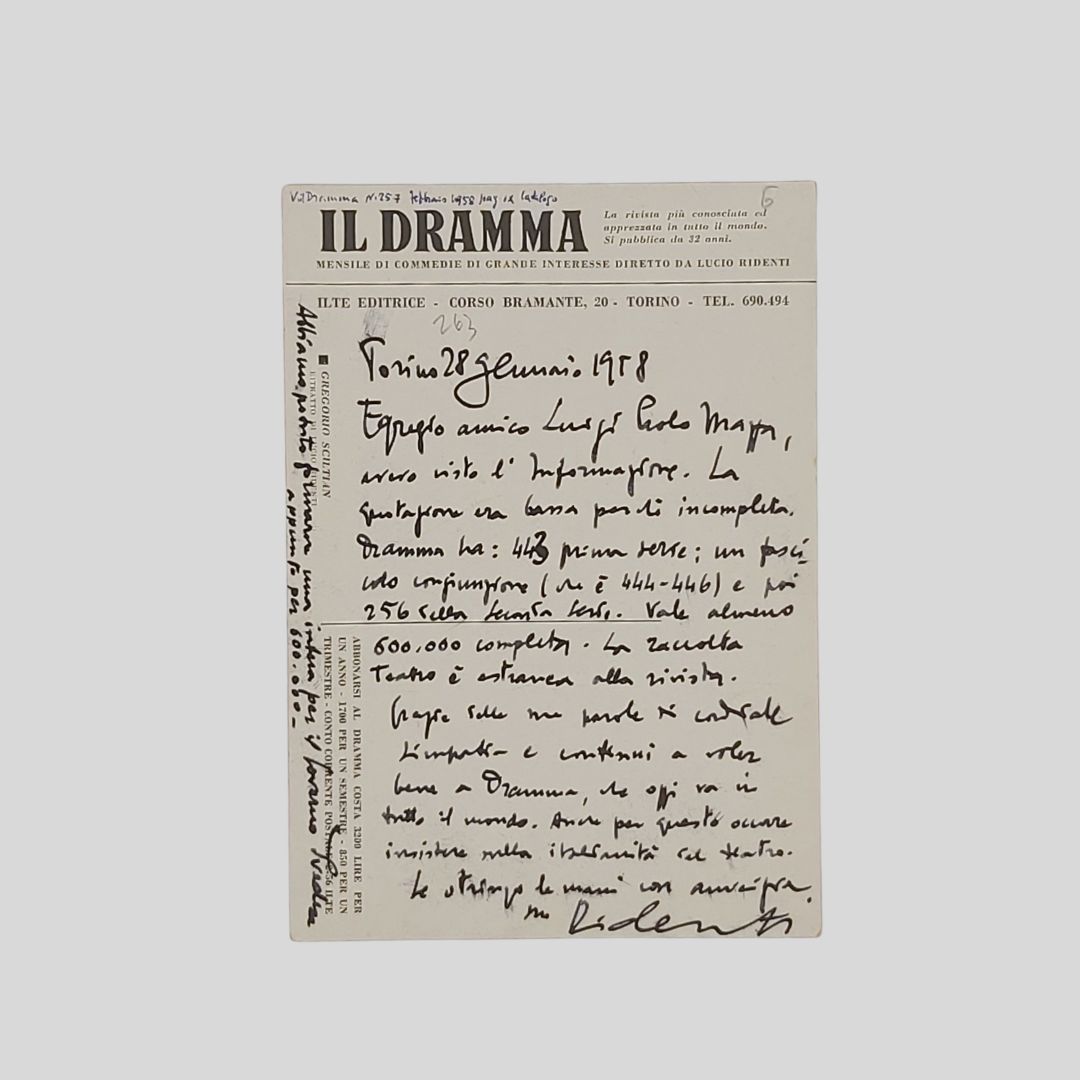 Il Dramma N. 257 Febbraio 1958 pag
6
IL DRAMMA
La rivista più conosciuta ed
apprezzata in tutto il mondo.
Si pubblica da 32 anni.
MENSILE DI COMMEDIE DI GRANDE INTERESSE DIRETTO DA LUCIO RIDENTI
ILTE EDITRICE - CORSO BRAMANTE, 20 - TORINO - TEL. 690.494
263
Torino 28 gennaio 1958
Egregio amico Luigi Paolo
avevo visto l'Informazione. La
quotazione era bassa perché incompleta.
Dramma ha: 443 prima serie; un fasci-
colo congiunzione (che è 444-446) e poi
256 della seconda serie. Vale almeno
600.000 completa. La raccolta
Teatro è estranea alla rivista.
Grazie delle sue parole di cordiale
simpatia e continui a voler
bene a Dramma, che oggi va in
tutto il mondo. Anche per questo occorre
insistere sulla italianità del teatro.
Le stringo le mani con amicizia,
suo Ridenti
■ GREGORIO SCILTIAN
RITRATTO DI LUCIO RIDENTI
ABBONARSI AL DRAMMA COSTA 3200 LIRE PER
UN ANNO - 1700 PER UN SEMESTRE - 850 PER UN
TRIMESTRE - CONTO CORRENTE POSTALE ILTE
Abbiamo potuto formarne una intera per il governo svedese
appunto per 600.000-